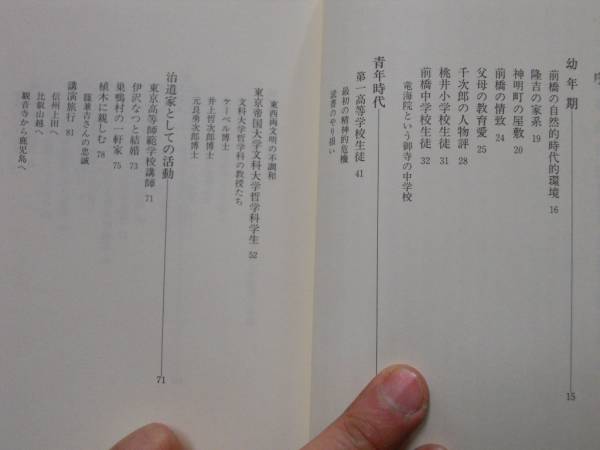 幼年期 15
前橋の自然的時代的環境 16
隆吉の家系 19
神明町の屋敷 20
前橋の情致 24
父母の教育愛 25
千次郎の人物評 28
桃井小学校生徒 31
前橋中学校生徒 32
竜海院という御寺の中学校
青年時代
第一高等学校生徒 41
最初の精神的危機
武香のやり扱い
東西両文明の不調和
東京帝国大学文科大学哲学科学生 52
文科大学哲学科の教授たち
ケーベル博士
井上哲次郎博士
元良勇次郎博士
治道家としての活動 71
東京高等師範学校講師 71
伊沢なつと結婚 73
巣鴨村の一軒家 75
植木に親しむ 78
鎌吉さんの忠誠
講演旅行 81
信州上田へ
比叡山越へ
観音寺から鹿児島へ